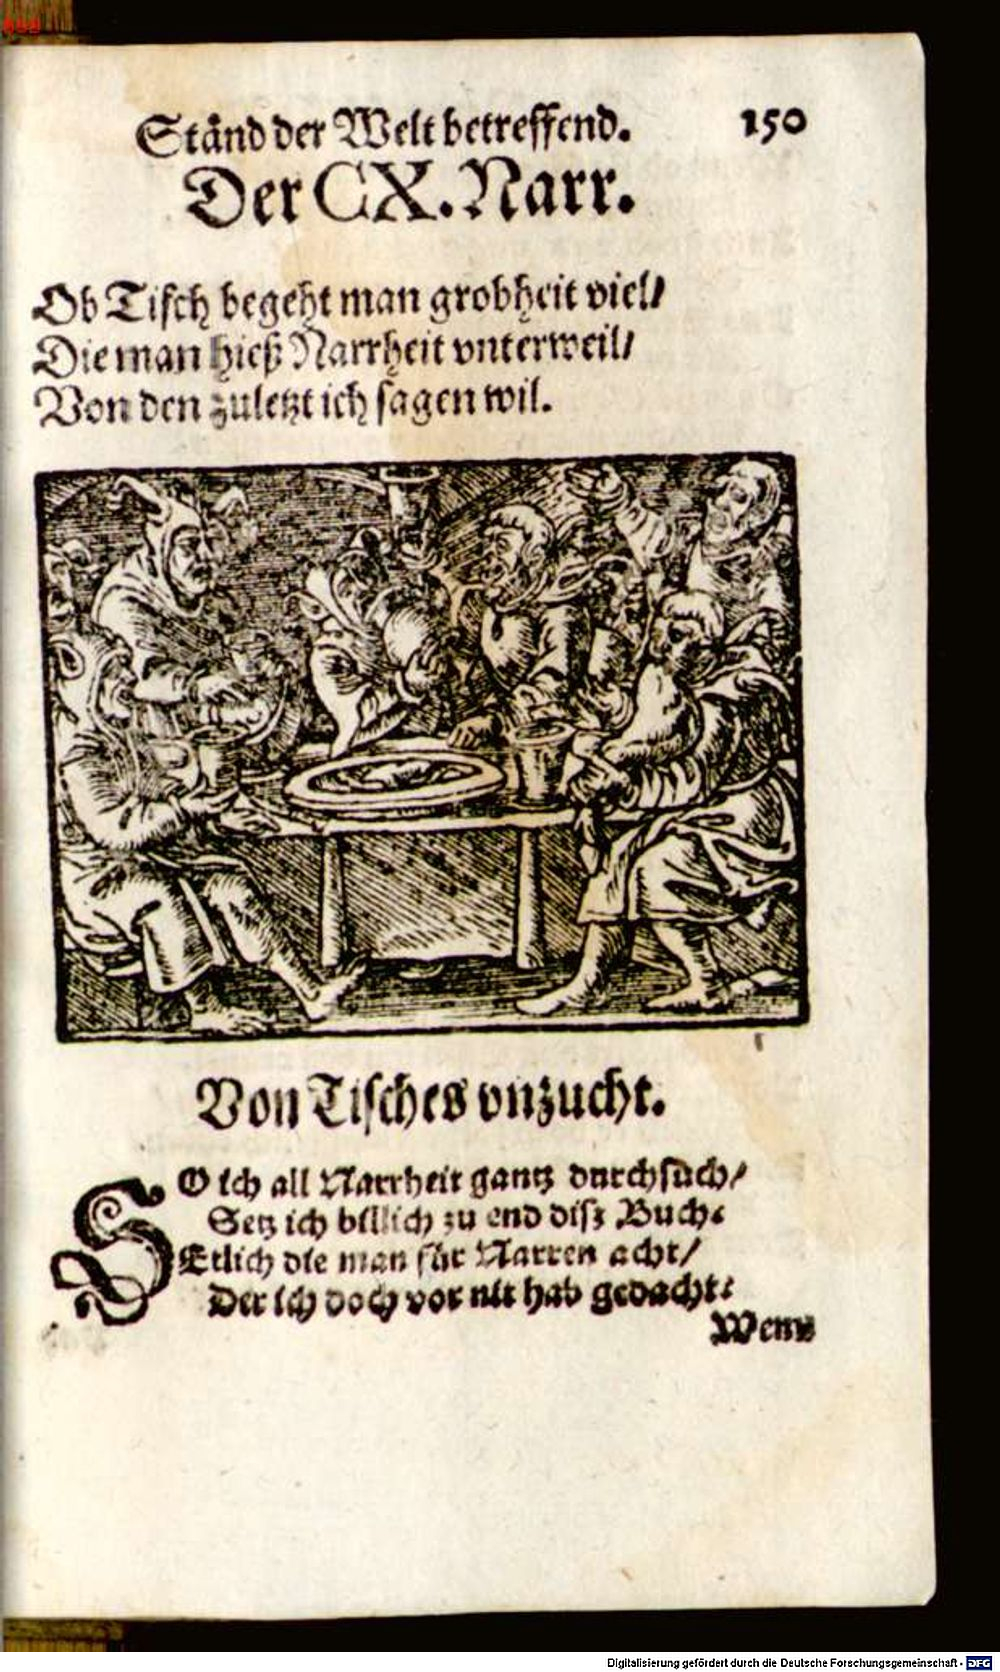 Stånd der Welt betreffend. 150
Der CX. Narr.
Ob Tisch begeht man grobheit viel/
Die man hieß Narrheit vnterweil/
Von den zuletzt ich sagen wil.
Von Tisches vnzucht.
SO ich all Narrheit gantz durchsůch/
Setz ich billich zu end diß Buch:
Etlich die man für Narren acht/
Der ich doch vor nit hab gedacht:
Wenn
Digitalisierung gefördert durch die Deutsche Forschungsgemeinschaft - DFG